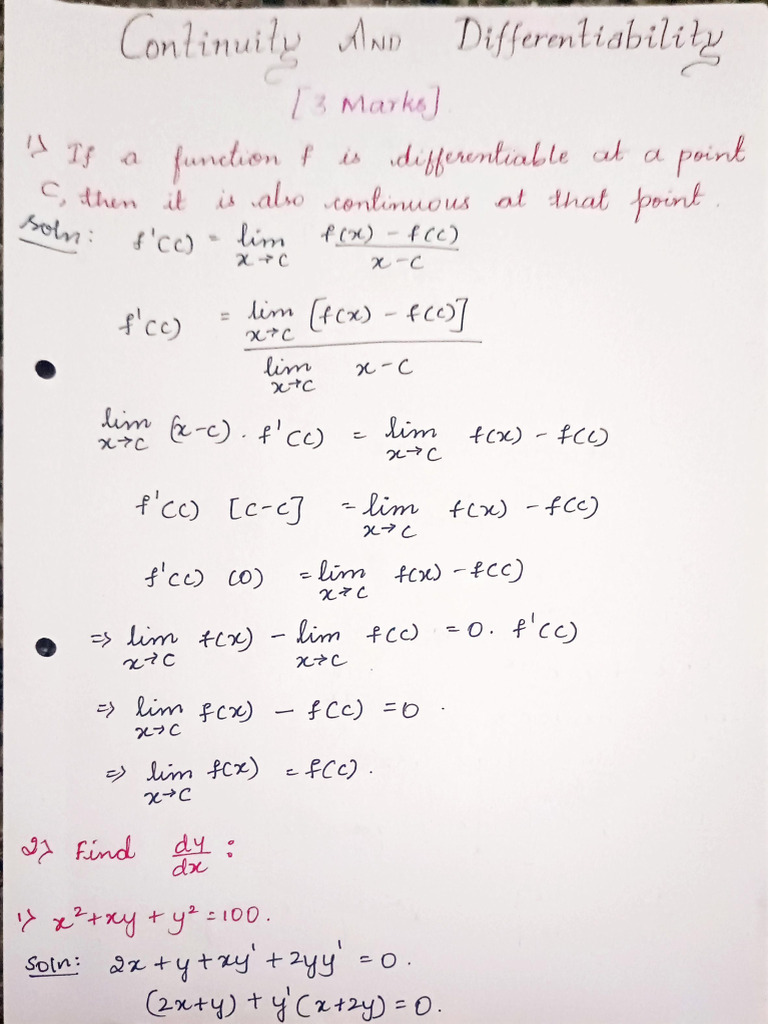 Continuity AND Differentiability
[3 Marks]
1) If a function f is differentiable at a point
C, then it is also continuous at that point.
Soln: f'(c) = lim x→c f(x) - f(c) / x - c
f'(c) = lim x→c [f(x) - f(c)] / lim x→c x - c
lim x→c (x-c) . f'(c) = lim x→c f(x) - f(c)
f'(c) [c-c] = lim x→c f(x) - f(c)
f'(c) (0) = lim x→c f(x) - f(c)
⇒ lim x→c f(x) - lim x→c f(c) = 0. f'(c)
⇒ lim x→c f(x) - f(c) = 0 .
⇒ lim x→c f(x) = f(c) .
2) Find dy/dx :
1) x²+xy + y² = 100.
Soln: 2x + y + xy' + 2yy' = 0 .
(2x+y) + y'(x+2y) = 0.